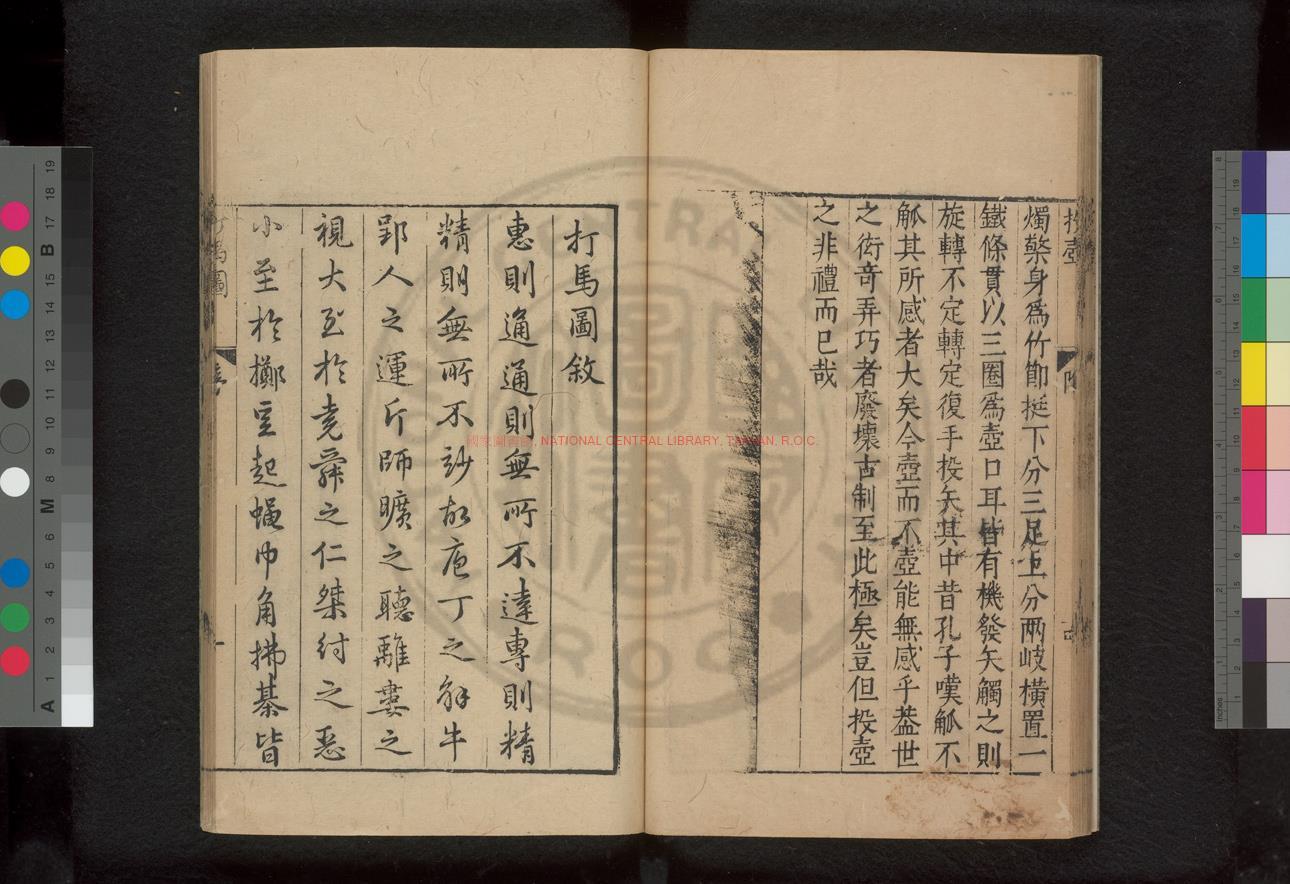 投壺
燭檠身爲竹節挺下分三足上分兩岐橫置一
鐵條貫以三圈爲壺口耳皆有機發矢觸之則
旋轉不定轉定復手投矢其中昔孔子嘆觚不
觚其所感者大矣今壺而不壺能無感乎葢世
之衒竒弄巧者廢壞古制至此極矣豈但投壺
之非禮而已哉
打馬圖敘
惠則通通則無所不達專則精
精則無所不玅故庖丁之解牛
郢人之運斤師曠之聽離婁之
視大至於堯舜之仁桀紂之惡
小至於擲豆起蠅巾角拂棊皆
國家圖書館, NATIONAL CENTRAL LIBRARY, TAIWAN, R.O.C.